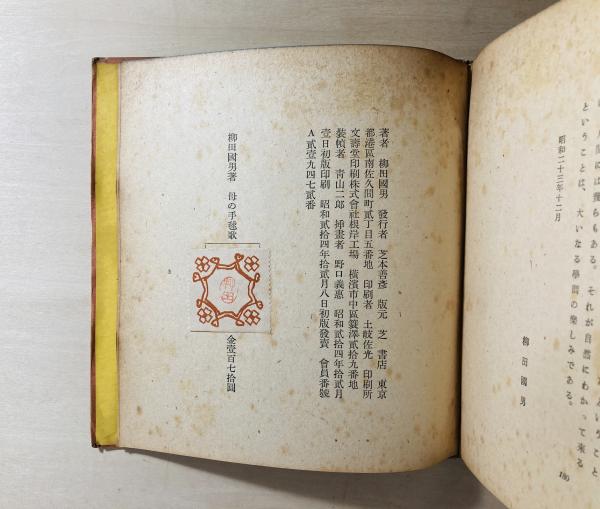 人間には誰もある。それが自然にわかって來る
ということは、大いなる學問の樂しみである。
昭和二十三年十二月
柳田國男
180
著者 柳田國男 發行者 芝本善彥 版元 芝書店 東京
都港區南佐久間町貳丁目五番地 印刷者 土岐佐光 印刷所
文壽堂印刷株式會社根岸工場 橫濱市中區簑澤貳拾九番地
裝幀者 靑山二郎 挿畫者 野口義惠 昭和貳拾四年拾貳月
壹日初版印刷 昭和貳拾四年拾貳月八日初版發賣 會員番號
A貳壹九四七貳番
柳田國男著 母の手毬歌
柳田
金壹百七拾圓